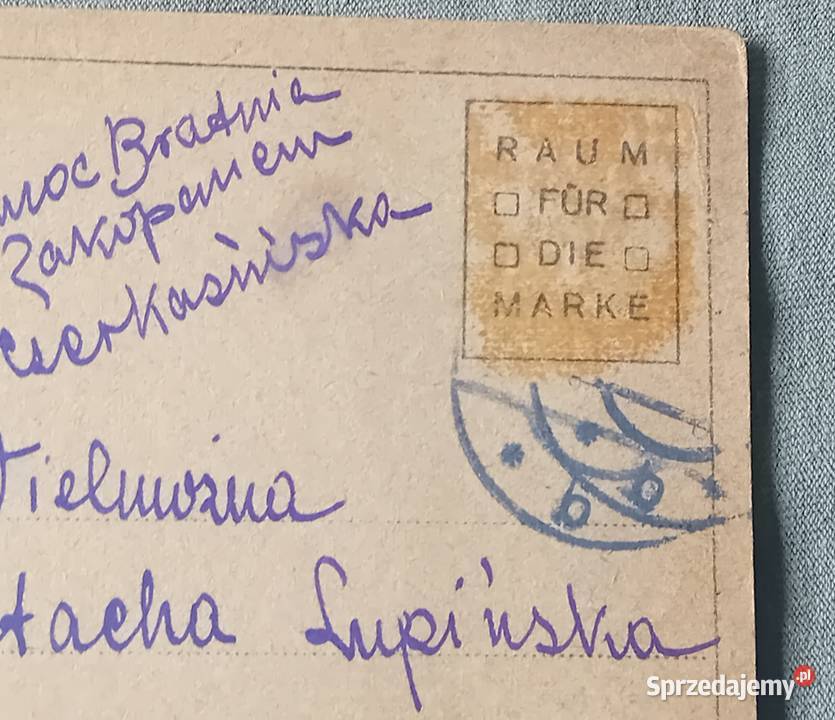 moc Bratnia
Zakopanem
Czerkaśńiska
RAUM
FÜR
DIE
MARKE
Wielmożna
tacha Łupińska
Sprzedajemy.pl